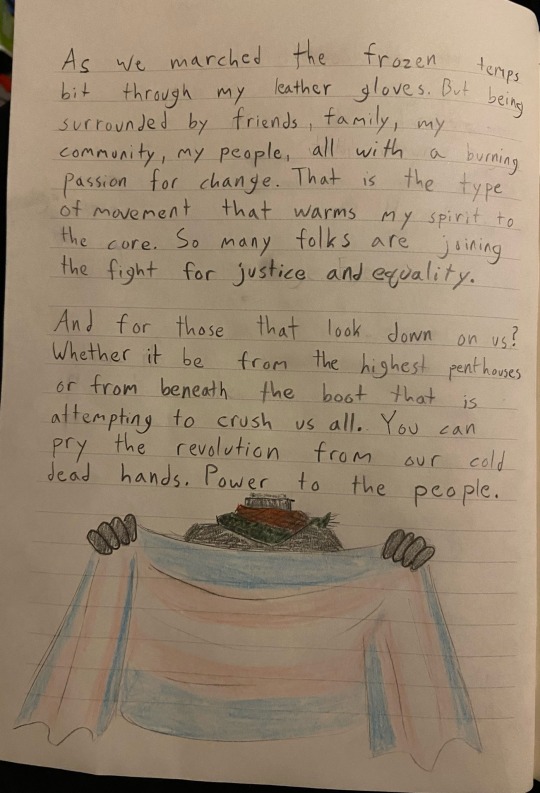 As we marched the frozen temps
bit through my leather gloves. But being
surrounded by friends, family, my
community, my people, all with a burning
passion for change. That is the type
of movement that warms my spirit to
the core. So many folks are joining
the fight for justice and equality.
And for those that look down on us?
Whether it be from the highest penthouses
or from beneath the boot that is
attempting to crush us all. You can
pry the revolution from our cold
dead hands. Power to the people.